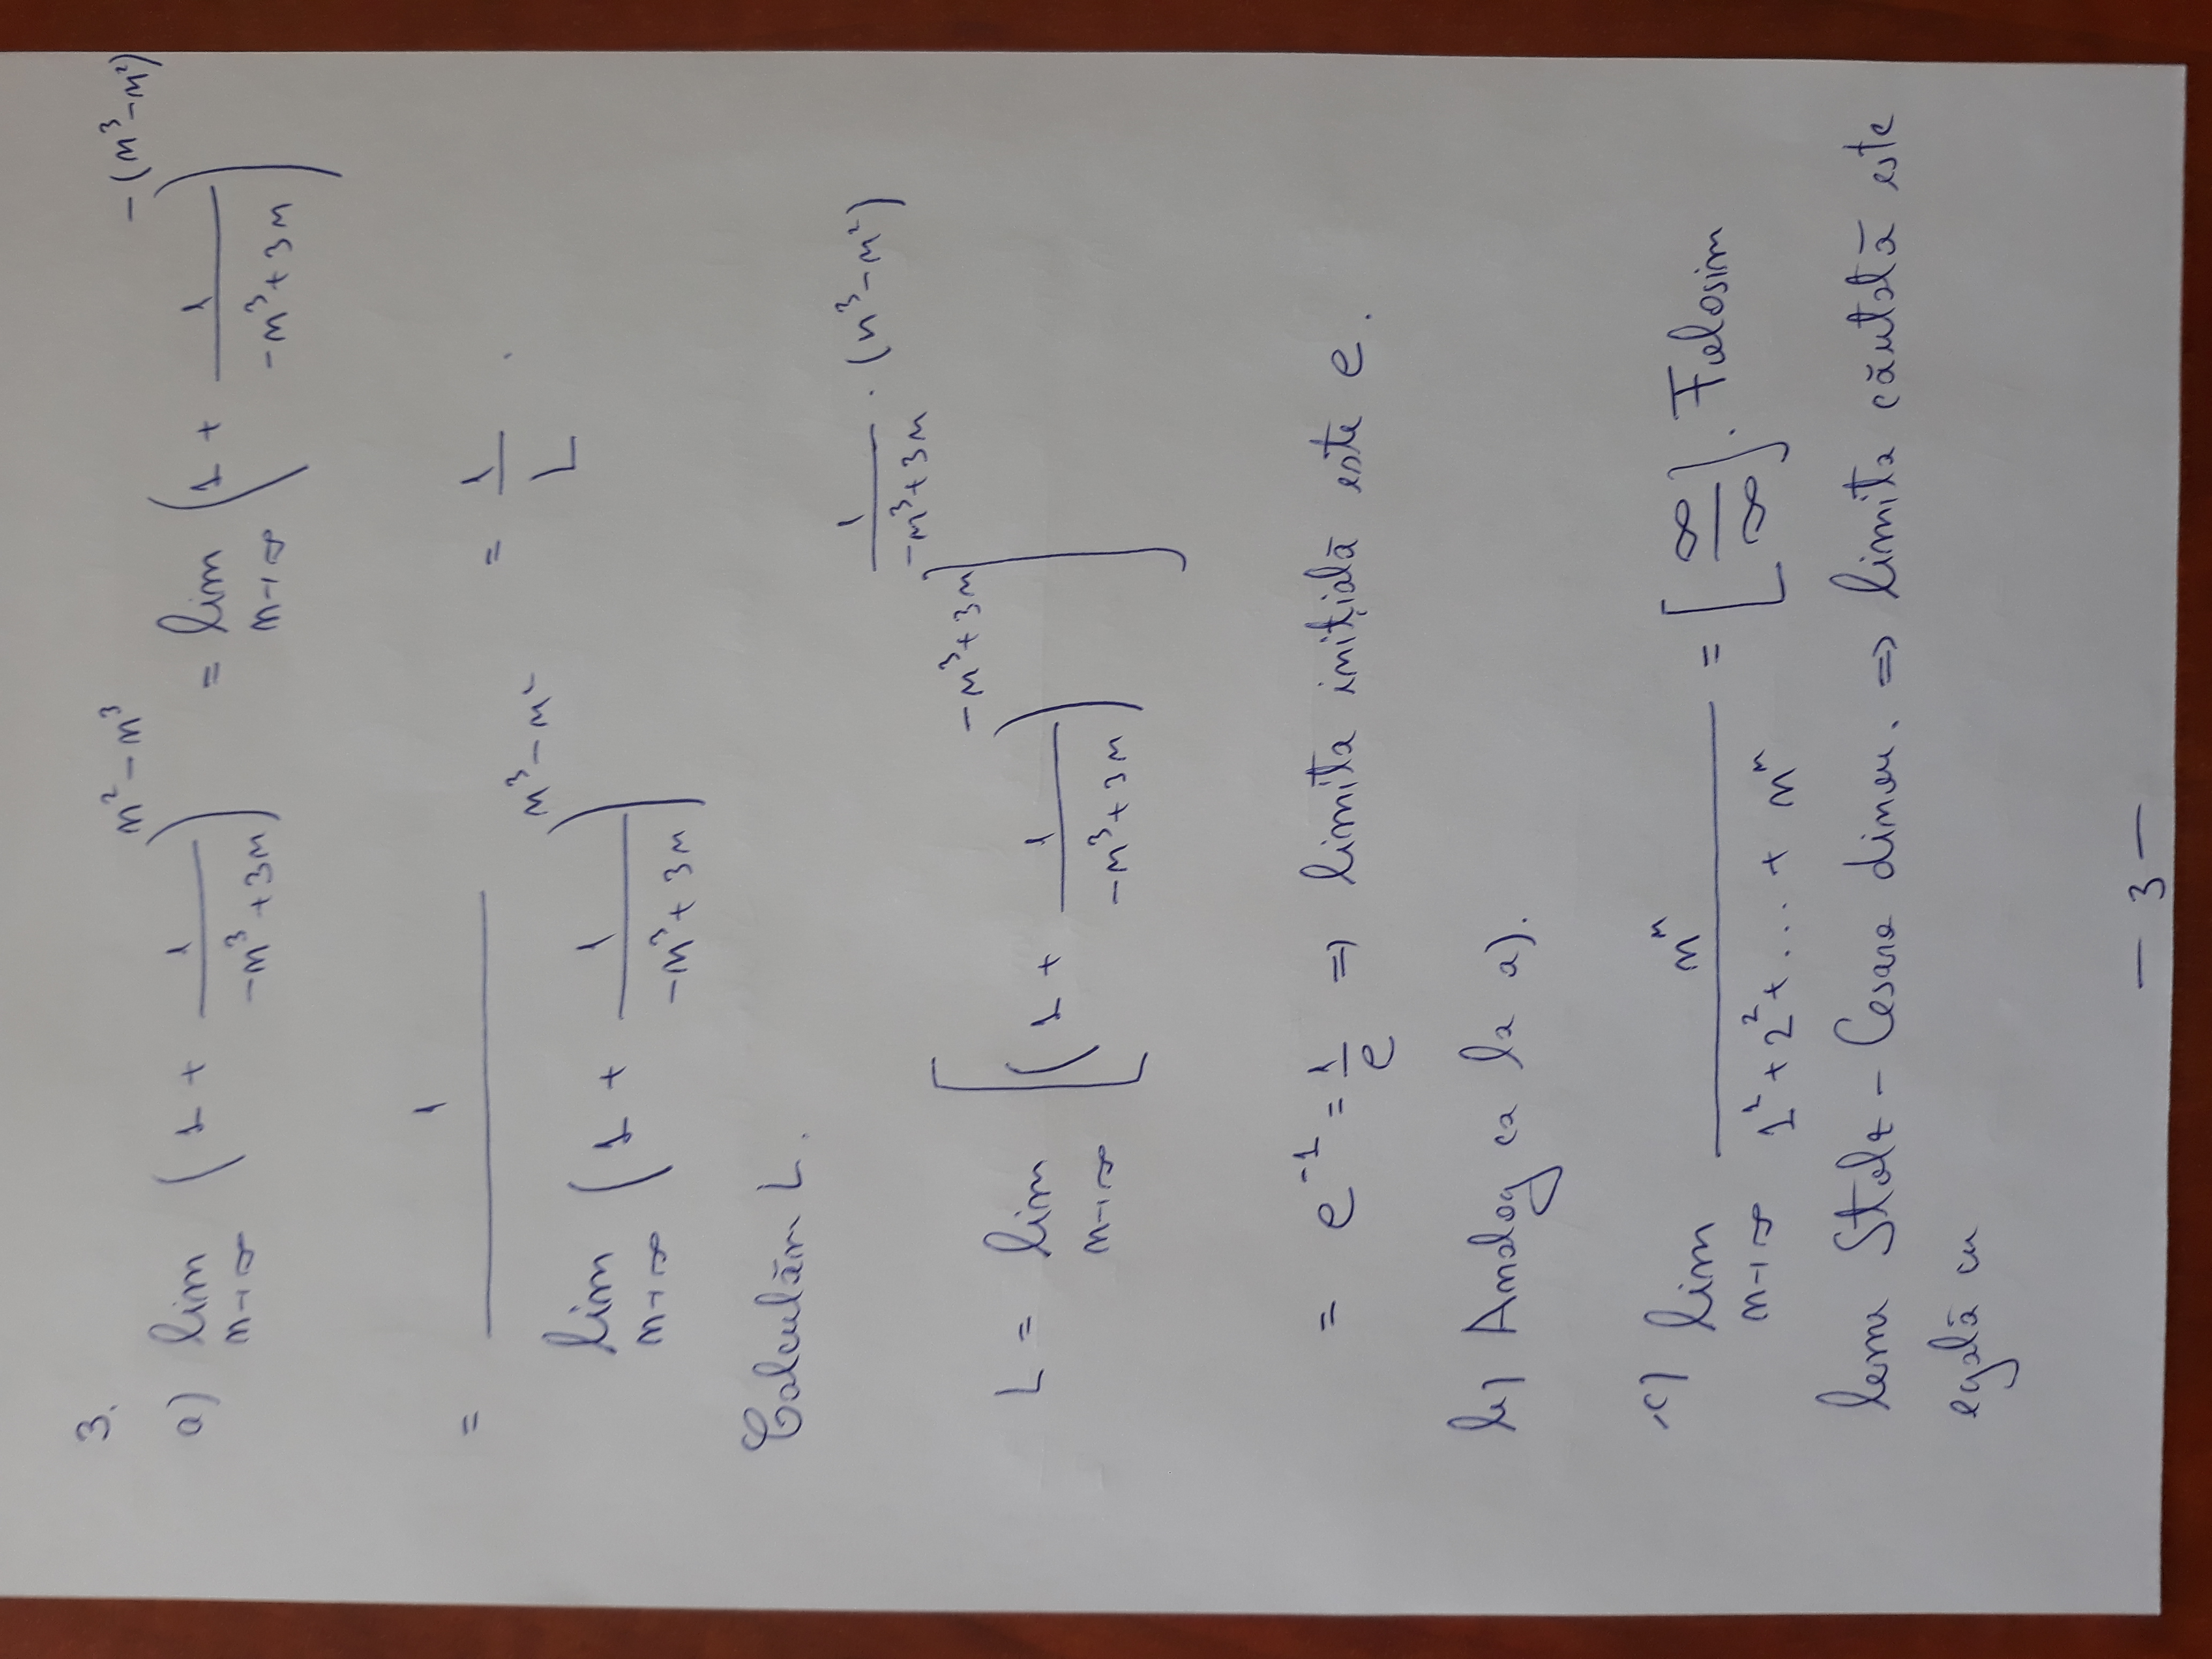 3.
a) lim_{n→∞} (1 + 1/(-n³+3n))^{n²-n³} = lim_{n→∞} (1 + 1/(-n³+3n))^{-(n³-n²)}
= 1/(lim_{n→∞} (1 + 1/(-n³+3n))^{n³-n²}) = 1/L .
Calculăm L.
L = lim_{n→∞} [(1 + 1/(-n³+3n))^{-n³+3n}]^{1/(-n³+3n) · (n³-n²)}
= e^{-1} = 1/e ⇒ limita inițială este e.
b) Analog ca la a).
c) lim_{n→∞} n^n/(1¹+2²+...+n^n) = [∞/∞]. Folosim
lema Stolz-Cesaro ⇒ limita căutată este
egală cu
- 3 -